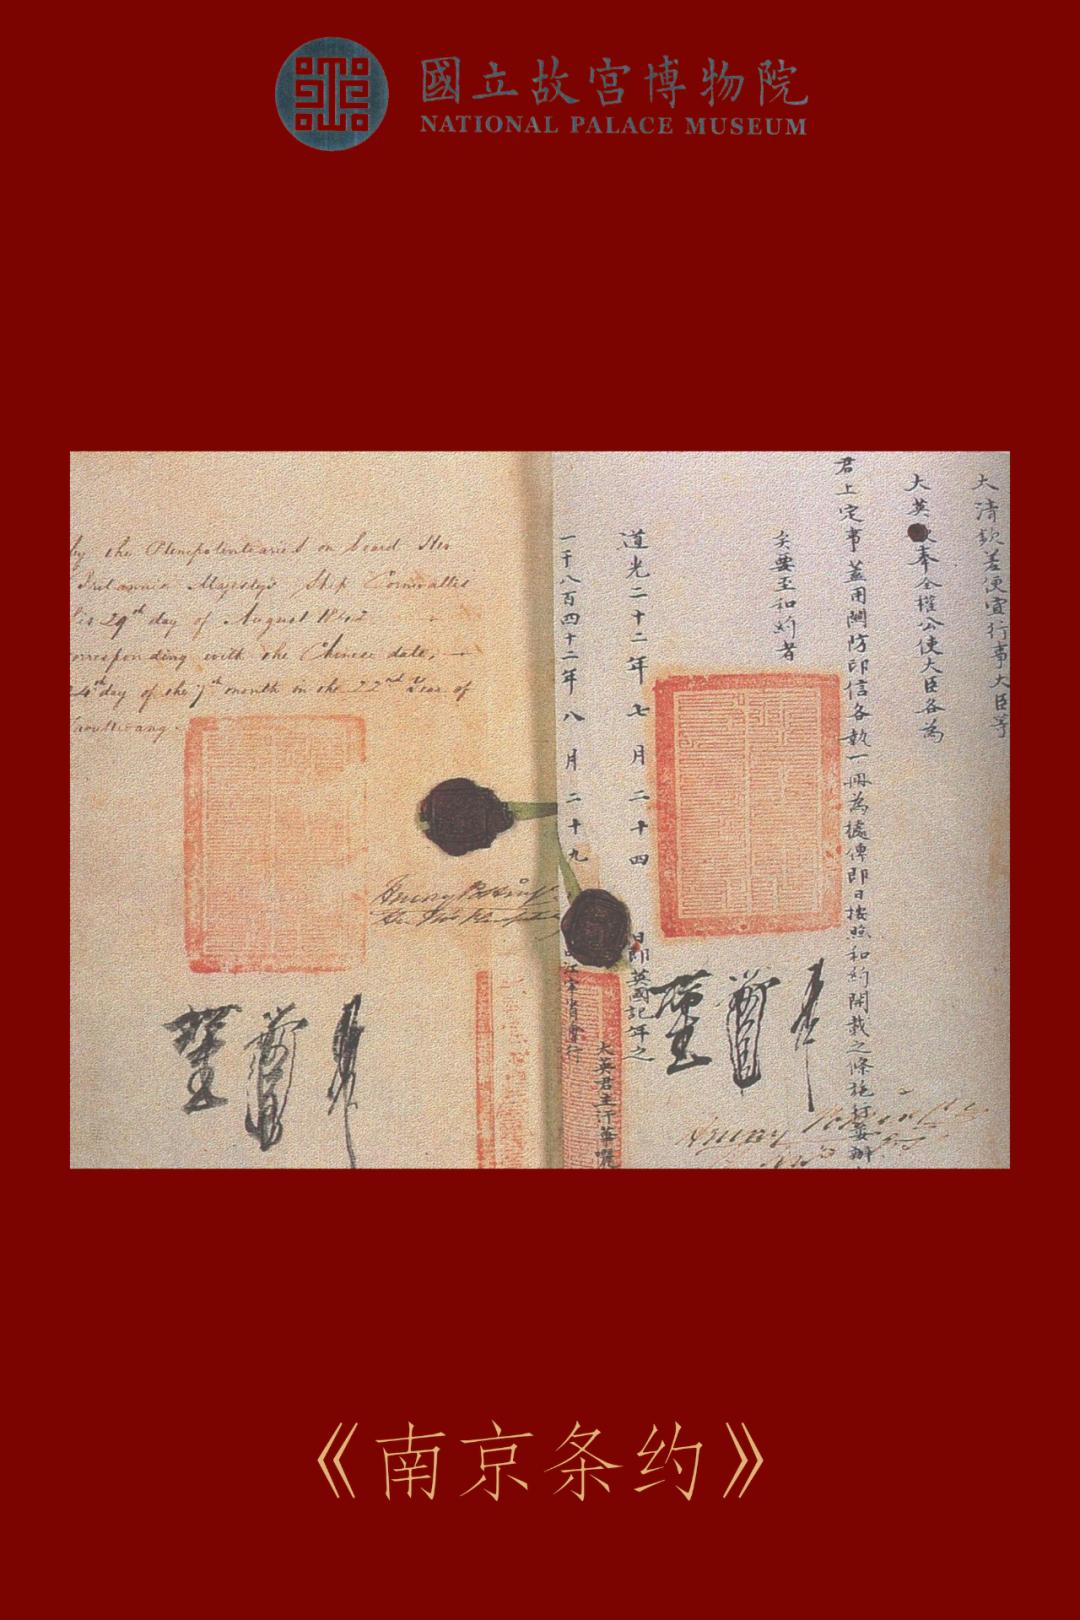 國立故宮博物院
NATIONAL PALACE MUSEUM
by the Plenipotentiaries on board Her
Britannic Majesty's Ship Cornwallis
this 29th day of August 1842
corresponding with the Chinese date,
24th day of the 7th month in the 22nd Year of
Taoukwang
大清欽差便宜行事大臣等
大英欽奉全權公使大臣各為
君上定事蓋用關防印信各執一冊為據俾即日按照和約開載之條施行妥辦
矣要至和約者
道光二十二年七月二十四日即英國記年之
一千八百四十二年八月二十九
大英君主汗華囇
《南京条约》